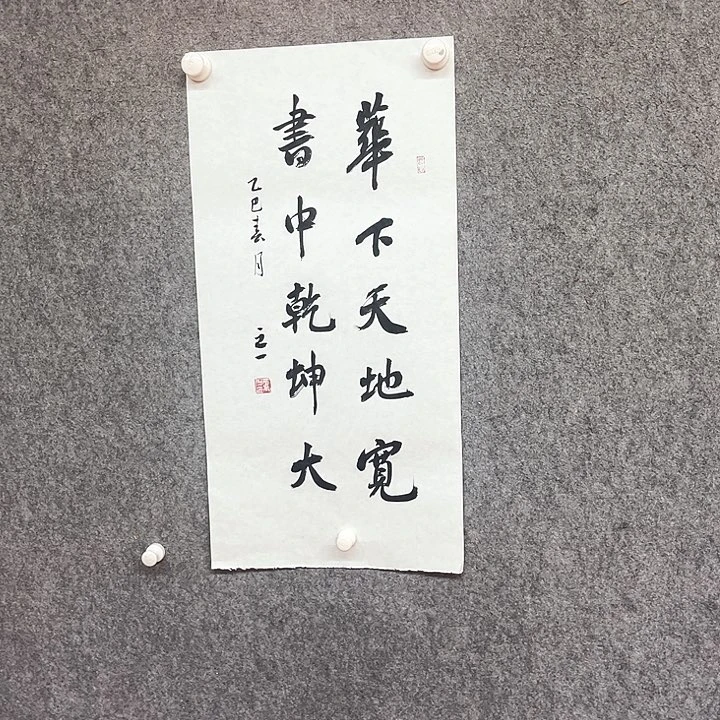 華下天地寬
書中乾坤大
乙巳春月
立一